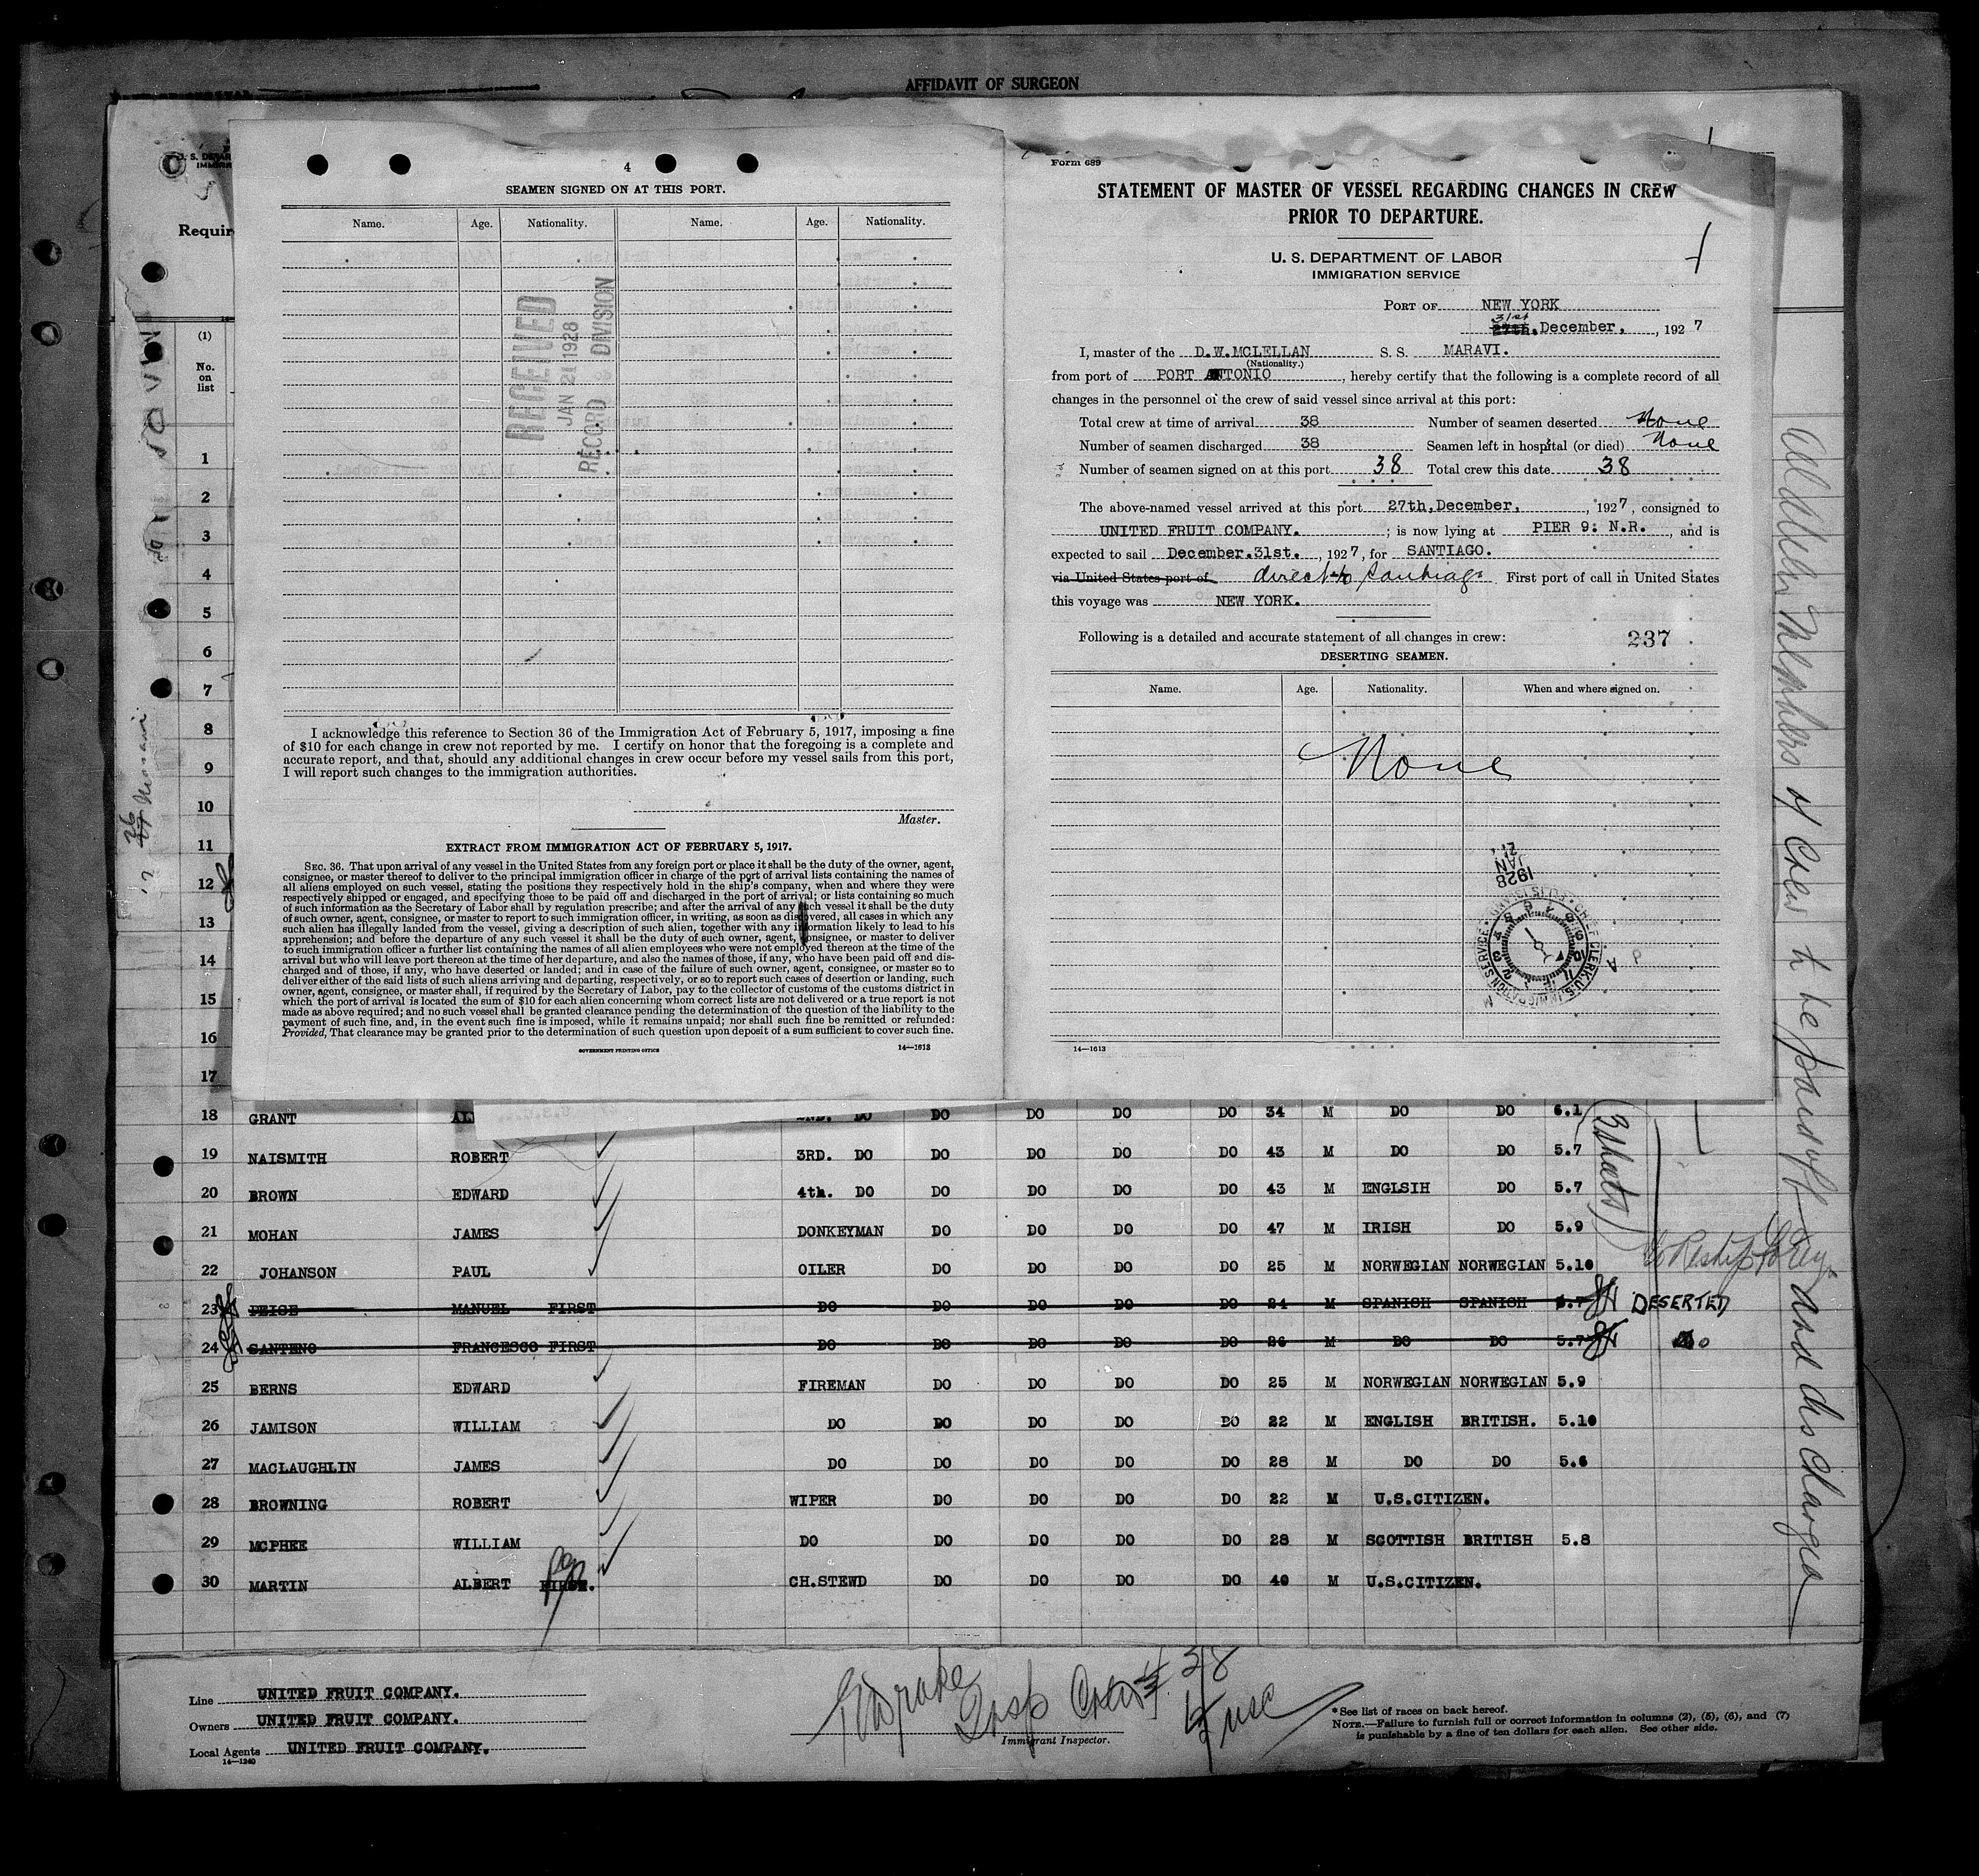 AFFIDAVIT OF SURGEON
4
SEAMEN SIGNED ON AT THIS PORT.
Name. Age. Nationality. Name. Age. Nationality.
RECEIVED
JAN 21 1928
RECORD DIVISION
I acknowledge this reference to Section 36 of the Immigration Act of February 5, 1917, imposing a fine
of $10 for each change in crew not reported by me. I certify on honor that the foregoing is a complete and
accurate report, and that, should any additional changes in crew occur before my vessel sails from this port,
I will report such changes to the immigration authorities.
Master.
EXTRACT FROM IMMIGRATION ACT OF FEBRUARY 5, 1917.
SEC. 36. That upon arrival of any vessel in the United States from any foreign port or place it shall be the duty of the owner, agent,
consignee, or master thereof to deliver to the principal immigration officer in charge of the port of arrival lists containing the names of
all aliens employed on such vessel, stating the positions they respectively hold in the ship's company, when and where they were
respectively shipped or engaged, and specifying those to be paid off and discharged in the port of arrival; or lists containing so much
of such information as the Secretary of Labor shall by regulation prescribe; and after the arrival of any such vessel it shall be the duty
of such owner, agent, consignee, or master to report to such immigration officer, in writing, as soon as discovered, all cases in which any
such alien has illegally landed from the vessel, giving a description of such alien, together with any information likely to lead to his
apprehension; and before the departure of any such vessel it shall be the duty of such owner, agent, consignee, or master to deliver
to such immigration officer a further list containing the names of all alien employees who were not employed thereon at the time of the
arrival but who will leave port thereon at the time of her departure, and also the names of those, if any, who have been paid off and dis-
charged and of those, if any, who have deserted or landed; and in case of the failure of such owner, agent, consignee, or master so to
deliver either of the said lists of such aliens arriving and departing, respectively, or so to report such cases of desertion or landing, such
owner, agent, consignee, or master shall, if required by the Secretary of Labor, pay to the collector of customs of the customs district in
which the port of arrival is located the sum of $10 for each alien concerning whom correct lists are not delivered or a true report is not
made as above required; and no such vessel shall be granted clearance pending the determination of the question of the liability to the
payment of such fine, and, in the event such fine is imposed, while it remains unpaid; nor shall such fine be remitted or refunded:
Provided, That clearance may be granted prior to the determination of such question upon deposit of a sum sufficient to cover such fine.
GOVERNMENT PRINTING OFFICE 14—1613
Form 689
STATEMENT OF MASTER OF VESSEL REGARDING CHANGES IN CREW
PRIOR TO DEPARTURE.
U. S. DEPARTMENT OF LABOR
IMMIGRATION SERVICE
PORT OF NEW YORK
31st
27th, December, , 1927
I, master of the D.W.MCLELLAN S. S. MARAVI.
(Nationality.)
from port of PORT ANTONIO , hereby certify that the following is a complete record of all
changes in the personnel of the crew of said vessel since arrival at this port:
Total crew at time of arrival 38 Number of seamen deserted None
Number of seamen discharged 38 Seamen left in hospital (or died) None
Number of seamen signed on at this port 38 Total crew this date 38
The above-named vessel arrived at this port 27th,December, , 1927, consigned to
UNITED FRUIT COMPANY. ; is now lying at PIER 9: N.R. , and is
expected to sail December.31st. , 1927, for SANTIAGO.
via United States port of direct to Santiago First port of call in United States
this voyage was NEW YORK.
Following is a detailed and accurate statement of all changes in crew: 237
DESERTING SEAMEN.
Name. Age. Nationality. When and where signed on.
None
1928
JAN
CHIEF CLERK, U.S. IMMIGRATION SERVICE
14—1613
Requir
(1)
No.
on
list
1
2
3
4
5
6
7
8
9
10
11
12
13
14
15
16
17
18 GRANT 2ND. DO DO DO DO DO 34 M DO DO 6.1
19 NAISMITH ROBERT 3RD. DO DO DO DO DO 43 M DO DO 5.7
20 BROWN EDWARD 4th. DO DO DO DO DO 43 M ENGLSIH DO 5.7
21 MOHAN JAMES DONKEYMAN DO DO DO DO 47 M IRISH DO 5.9
22 JOHANSON PAUL OILER DO DO DO DO 25 M NORWEGIAN NORWEGIAN 5.10
23 MANUEL FIRST DO DO DO DO DO 24 M SPANISH SPANISH 5.7 DESERTED
24 SANTENO FRANCESCO FIRST DO DO DO DO DO 26 M DO DO 5.7 DO
25 BERNS EDWARD FIREMAN DO DO DO DO 25 M NORWEGIAN NORWEGIAN 5.9
26 JAMISON WILLIAM DO DO DO DO DO 22 M ENGLISH BRITISH. 5.10
27 MACLAUGHLIN JAMES DO DO DO DO DO 28 M DO DO 5.6
28 BROWNING ROBERT WIPER DO DO DO DO 22 M U.S.CITIZEN.
29 MCPHEE WILLIAM DO DO DO DO DO 28 M SCOTTISH BRITISH 5.8
30 MARTIN ALBERT FIRST. CH.STEWD DO DO DO DO 40 M U.S.CITIZEN.
(3 sheets)
All alien members of crew to be paid off and discharged
Line UNITED FRUIT COMPANY.
Owners UNITED FRUIT COMPANY.
Local Agents UNITED FRUIT COMPANY.
14—1240
Insp
38
Immigrant Inspector.
* See list of races on back hereof.
NOTE.—Failure to furnish full or correct information in columns (2), (5), (6), and (7)
is punishable by a fine of ten dollars for each alien. See other side.